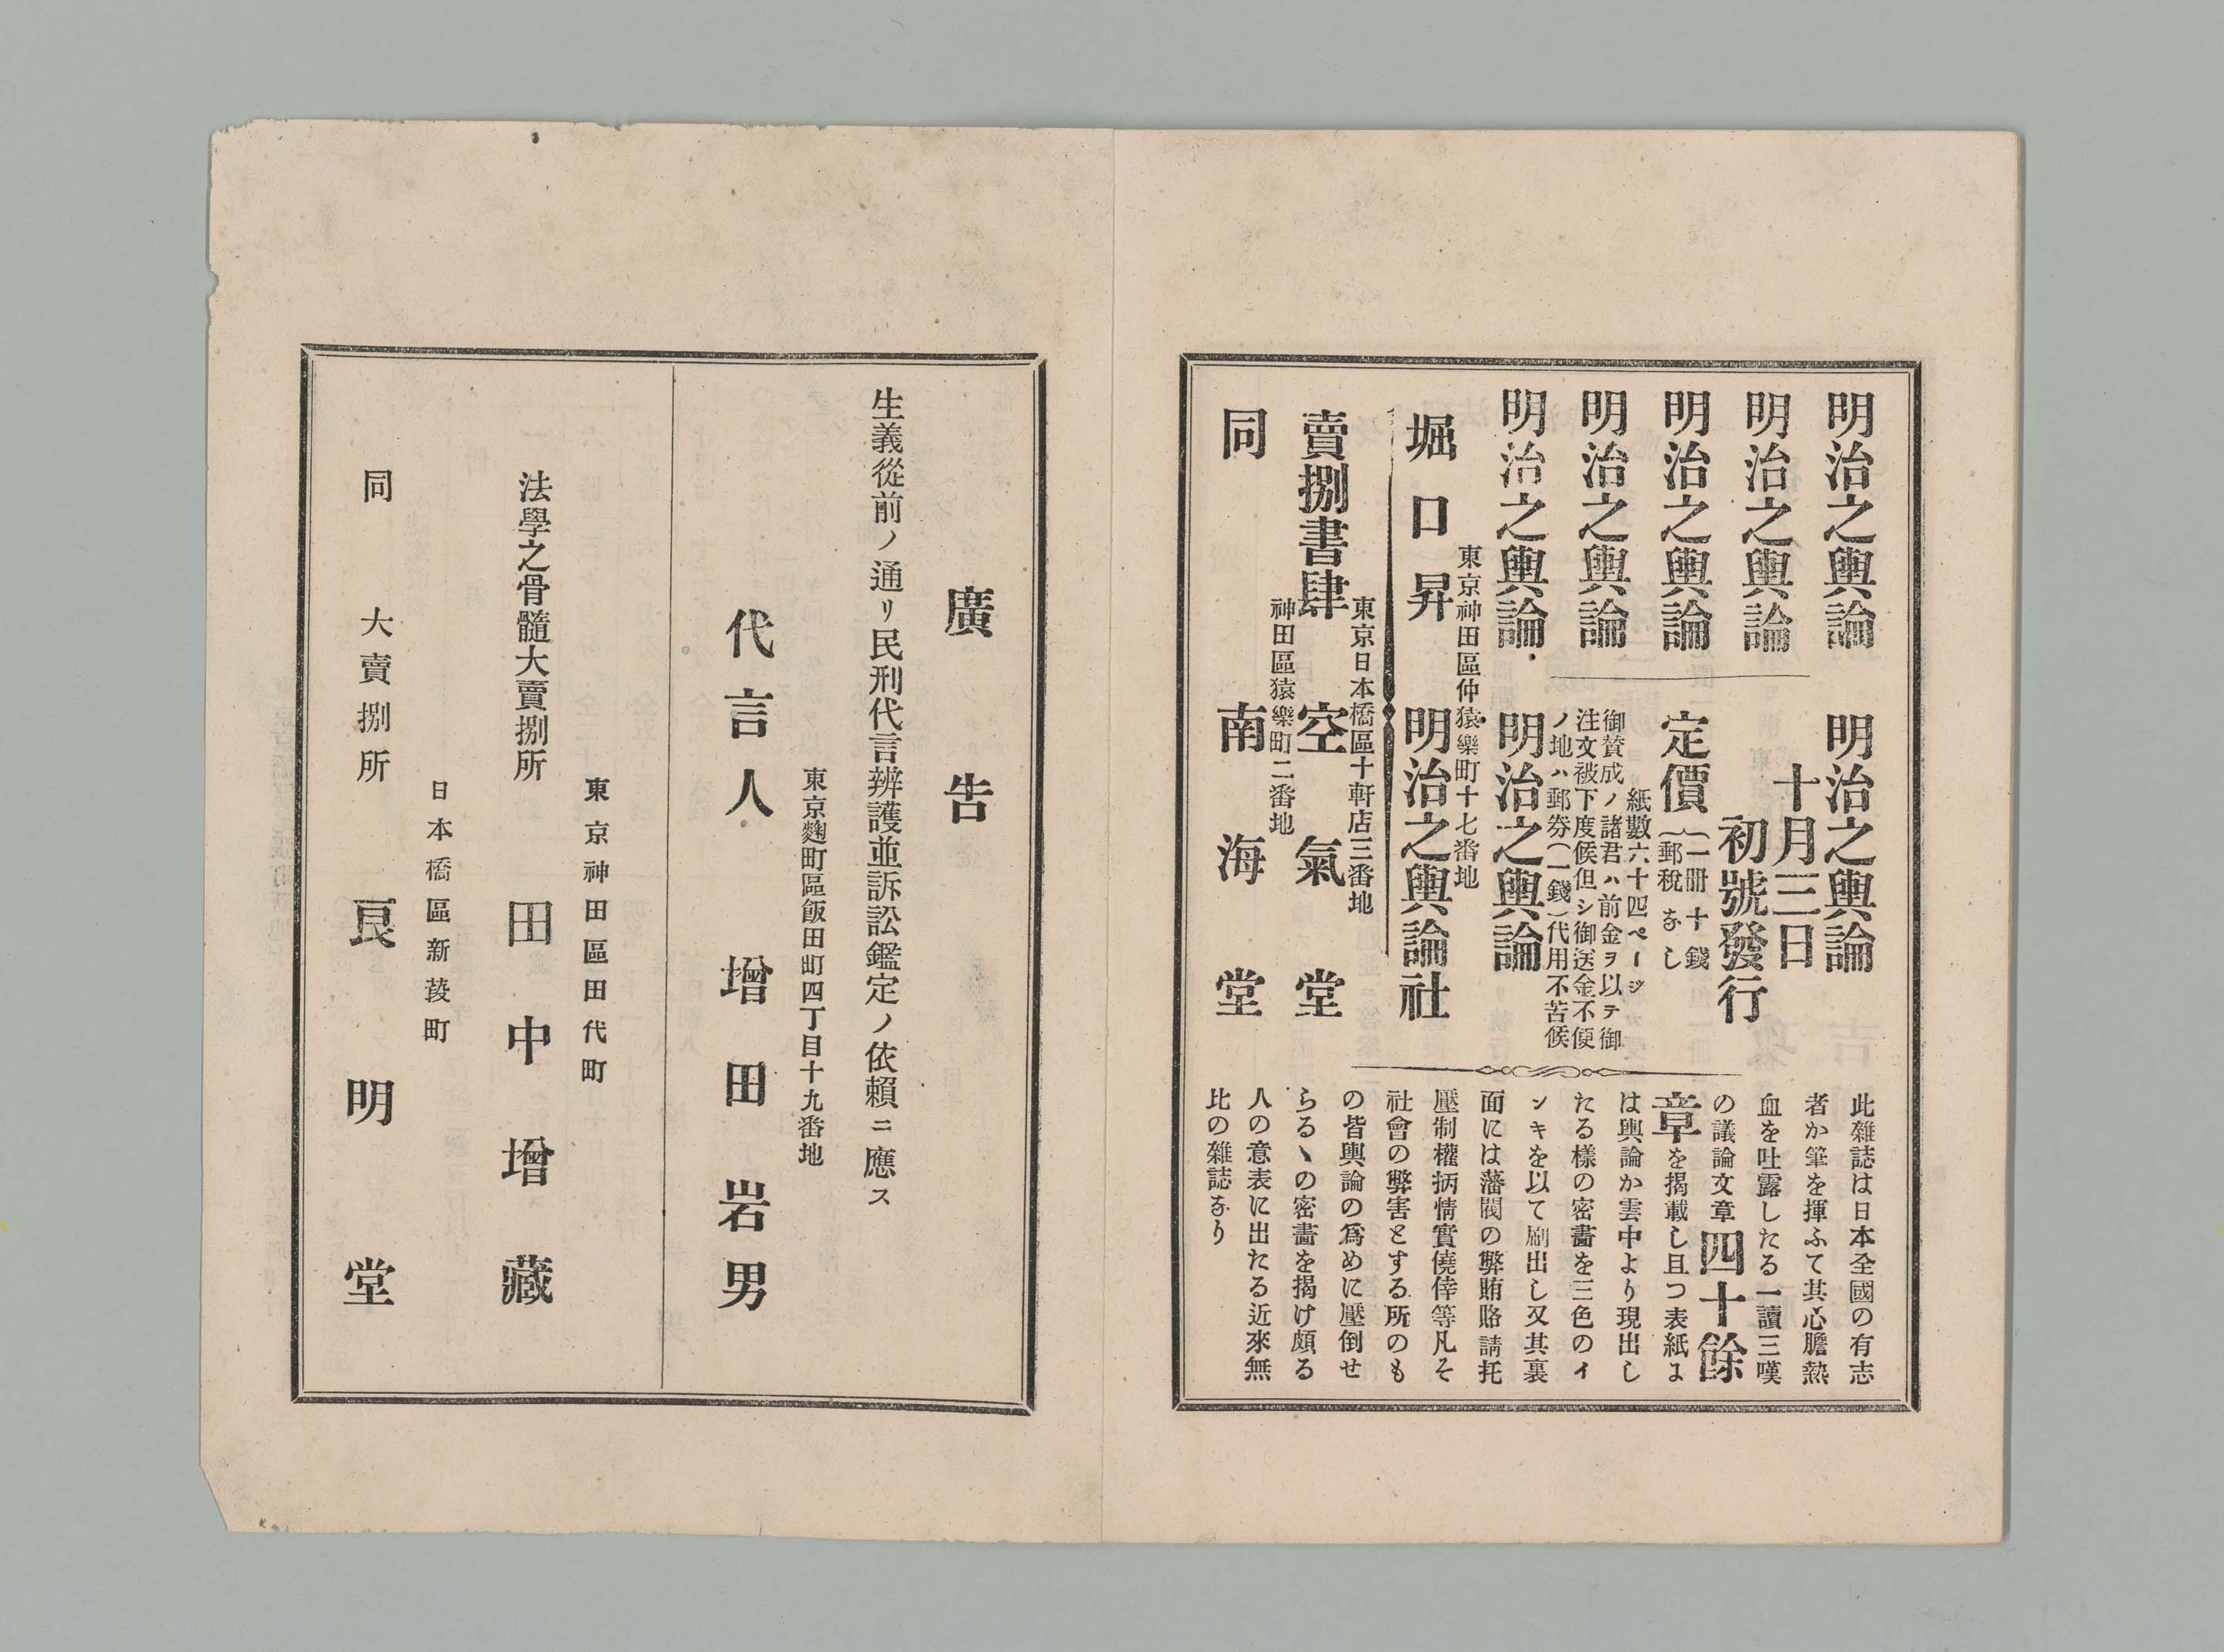 明治之輿論
明治之輿論
明治之輿論
明治之輿論
明治之輿論
明治之輿論
十月三日
初號發行
定價
(一冊十錢
(郵稅なし
紙數六十四ページ
御賛成ノ諸君ハ前金ヲ以テ御
注文被下度候但シ御送金不便
ノ地ハ郵券(一錢)代用不苦候
明治之輿論
東京神田區仲猿樂町十七番地
堀口昇 明治之輿論社
東京日本橋區十軒店三番地
賣捌書肆 空氣堂
神田區猿樂町二番地
同 南海堂
此雜誌は日本全國の有志
者か筆を揮ふて其心膽熱
血を吐露したる一讀三嘆
の議論文章四十餘
章を揭載し且つ表紙に
は輿論か雲中より現出し
たる樣の密畵を三色のイ
ンキを以て刷出し又其裏
面には藩閥の弊賄賂請托
壓制權抦情實僥倖等凡そ
社會の弊害とする所のも
の皆輿論の爲めに壓倒せ
らるヽの密畵を揭け頗る
人の意表に出たる近來無
比の雜誌なり
廣告
生義從前ノ通リ民刑代言辨護並訴訟鑑定ノ依賴ニ應ス
東京麴町區飯田町四丁目十九番地
代言人 增田岩男
東京神田區田代町
法學之骨髓大賣捌所 田中增藏
日本橋區新葭町
同 大賣捌所 良明堂